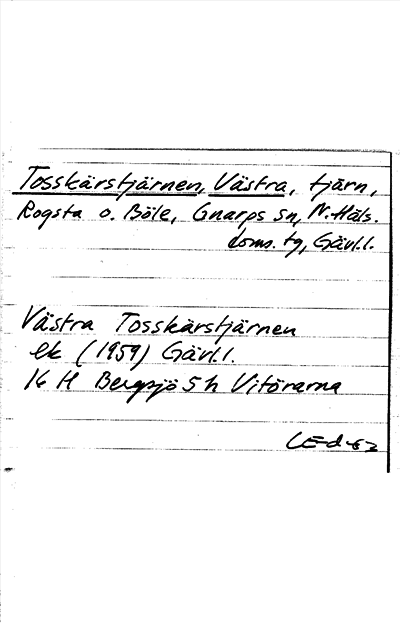 Tosskärstjärnen, Västra, tjärn,
Rogsta o. Böle, Gnarps sn, N. Häls.
doms. tg, Gävl.l.
Västra Tosskärstjärnen
ek (1959) Gävl.l.
16 H Bergsjö 5 h Vitörarna